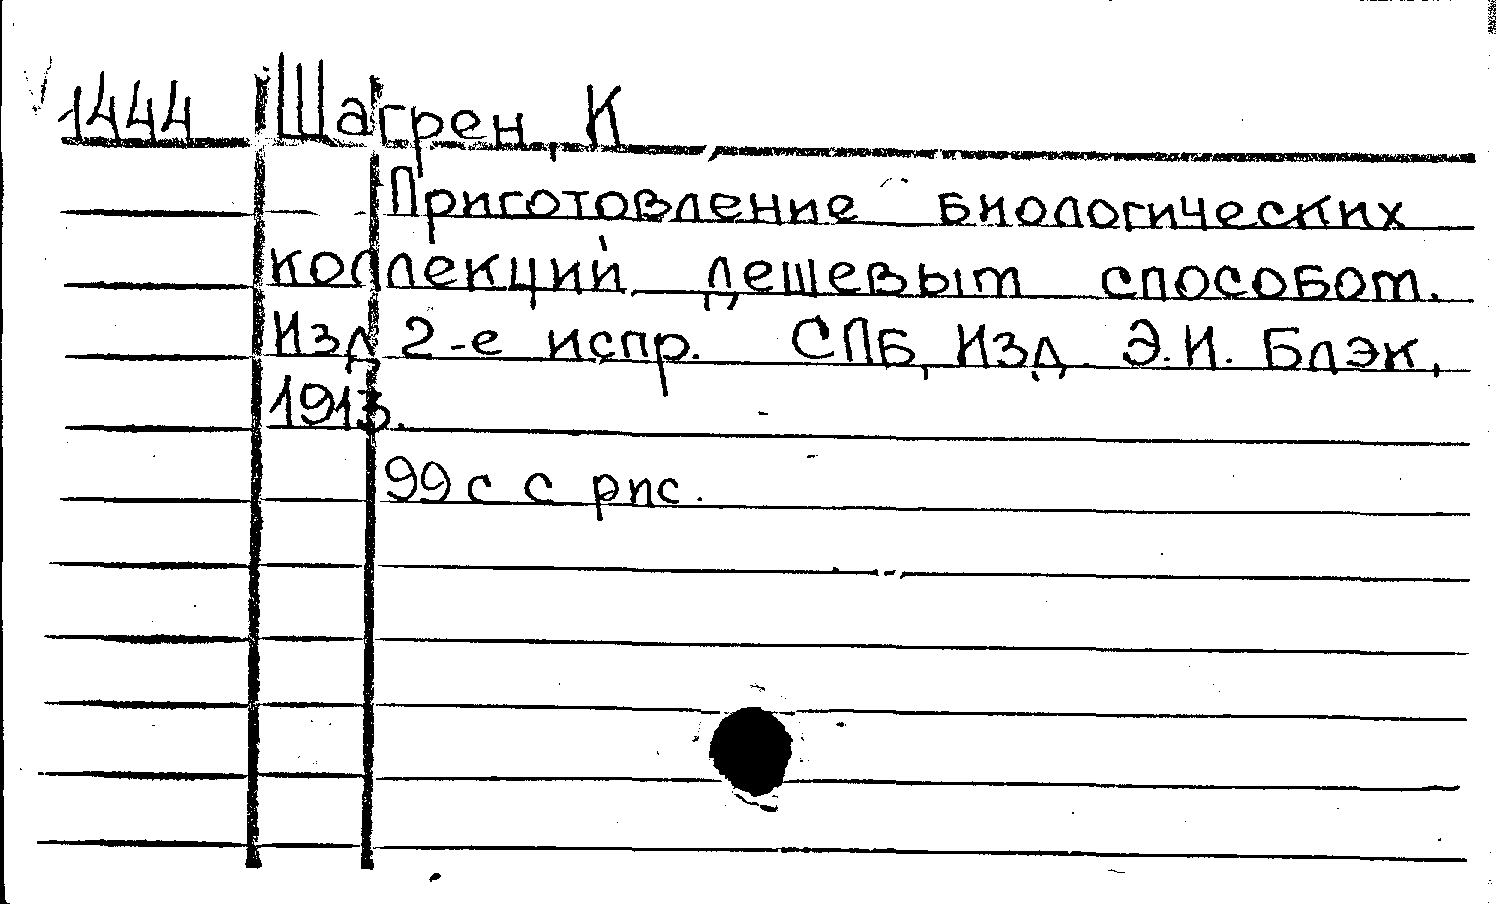 1444 Шагрен, К
Приготовление биологических
коллекций дешевым способом.
Изд 2-е испр. СПБ, Изд. Э.И. Блэк,
1913.
99 с с рис.